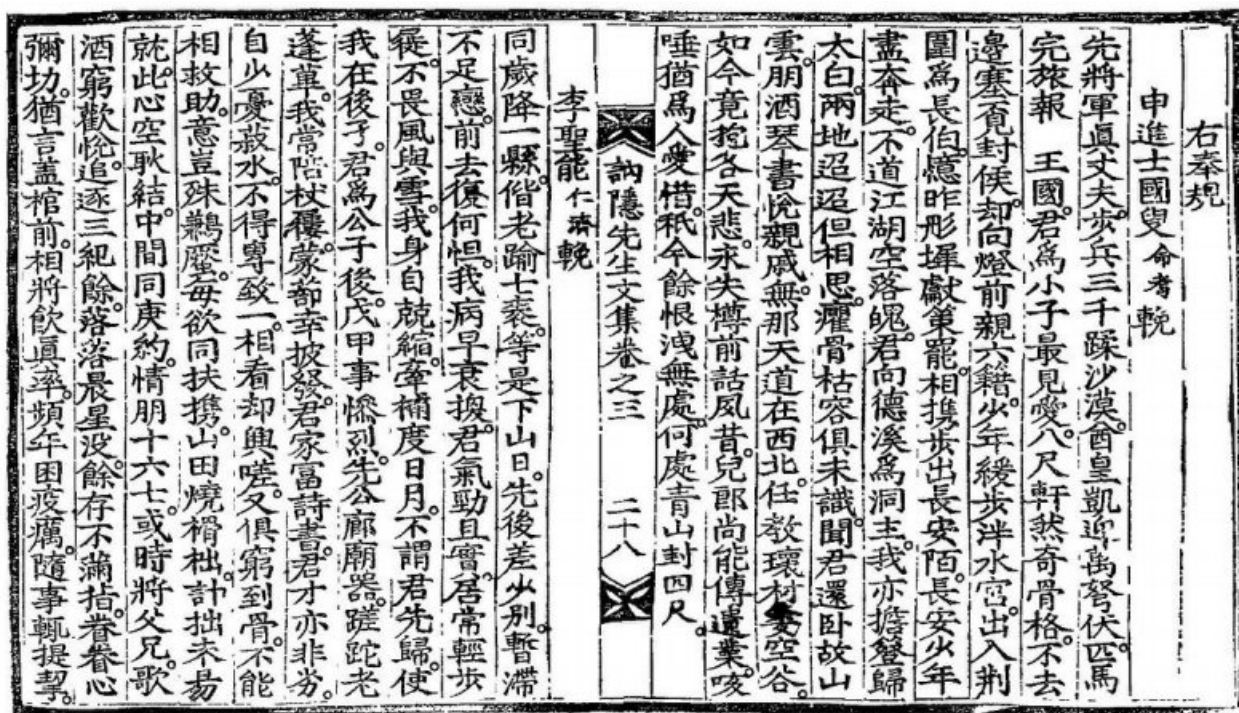 右奉規
申進士國叟命耉輓
先將軍眞丈夫步兵三千蹂沙漠酋皇凱迎萬弩伏匹馬
完旅報 王國君爲小子最見愛八尺軒然奇骨格不去
邊塞覓封侯却向燈前親六籍少年緩步泮水宮出入荆
圍爲長伯憶昨彤墀獻策罷相携步出長安陌長安少年
盡奔走不道江湖空落魄君向德溪爲洞主我亦擔簦歸
太白兩地迢迢但相思癯骨枯容俱未識聞君還卧故山
雲朋酒琴書悅親戚無那天道在西北任敎瓌材空谷
如今竟抱各天悲永失樽前話夙昔兒郎尙能傳遺業咳
唾猶爲人愛惜秖今餘恨洩無處何處青山封四尺
訥隱先生文集卷之三 二十八
李聖能仁濟輓
同歲降一縣偕老踰七袠等是下山日先後差少別暫滯
不足戀前去復何怛我病早衰換君氣勁且實居常輕步
屣不畏風與雪我身自兢縮牽補度日月不謂君先歸使
我在後孑君爲公子後戊甲事慘烈先公廊廟器蹉跎老
蓬蓽我常陪杖屨蒙蔀幸披發君家富詩書君才亦非劣
自少憂菽水不得專致一相看却興嗟又俱窮到骨不能
相救助意豈殊鶼蟨每欲同扶携山田燒榾柮計拙未易
就此心空耿結中間同庚約情朋十六七或時將父兄歌
酒窮歡悅追逐三紀餘落落晨星没餘存不滿指眷眷心
彌切猶言盖棺前相將飮眞率頻年困疫癘隨事輒提挈